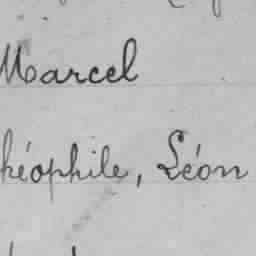 Marcel
héophile, Léon